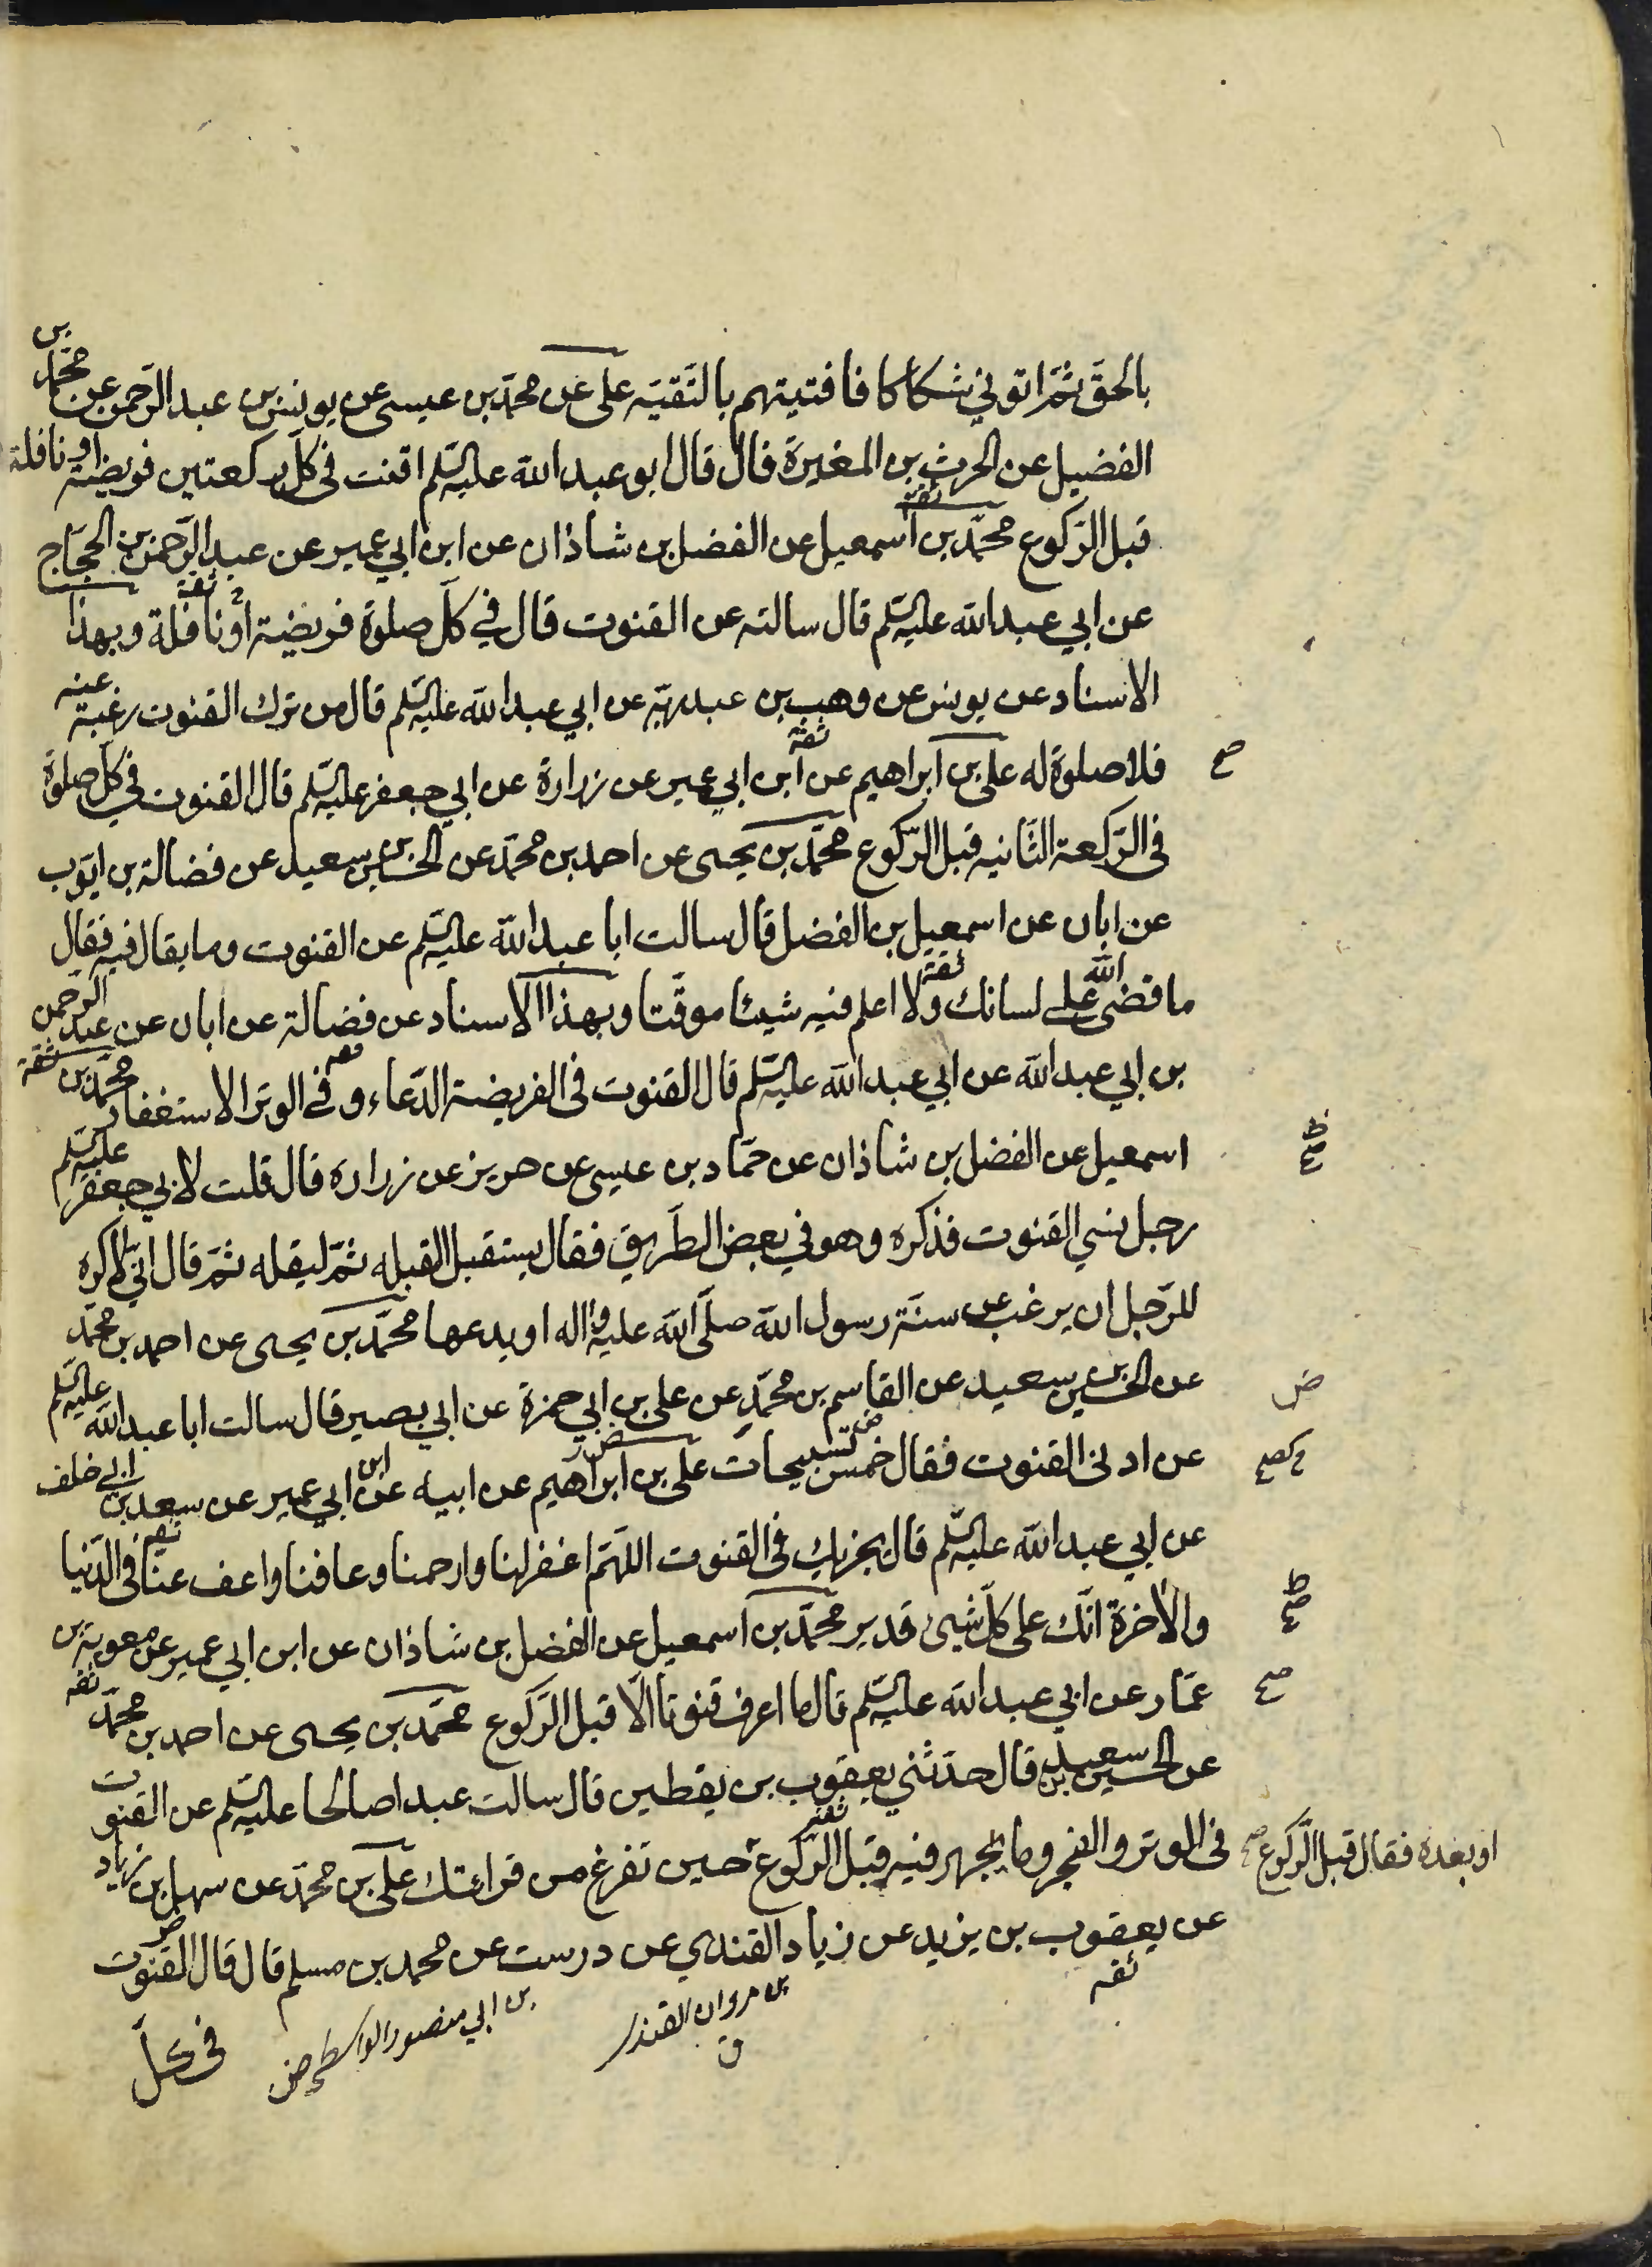 بالحقّ ثمّ اتوني شكاكا فافتيتهم بالتّقيّه على عن محمّد بن عيسى عن يونس بن عبد الرّحمن عن محمّد بن
الفضيل عن الحرث بن المغيرة قال قال ابو عبد الله عليه السّلم اقنت في كلّ ركعتين فريضة او نافلة
قبل الرّكوع محمّد بن اسمعيل عن الفضل بن شاذان عن ابن ابي عمير عن عبد الرّحمن بن الحجّاج
ثقة
عن ابي عبد الله عليه السّلم قال سالته عن القنوت قال في كلّ صلوة فريضة او نافلة وبهذا
ثقة
الاسناد عن يونس عن وهب بن عبد ربّه عن ابي عبد الله عليه السّلم قال من ترك القنوت رغبة عنه
ثقة
فلا صلوة له على بن ابراهيم عن ابن ابي عمير عن زرارة عن ابي جعفر عليه السّلم قال القنوت في كلّ صلوة
صح
في الرّكعة الثّانيه قبل الرّكوع محمّد بن يحيى عن احمد بن محمّد عن الحسين بن سعيد عن فضالة بن ايّوب
عن ابان عن اسمعيل بن الفضل قال سالت ابا عبد الله عليه السّلم عن القنوت وما يقال فيه فقال
ثقة
ما قضى الله على لسانك ولا اعلم فيه شيئا موقّتا وبهذا الاسناد عن فضالة عن ابان عن عبد الرحمن
ثقة
بن ابي عبد الله عن ابي عبد الله عليه السّلم قال القنوت في الفريضة الدّعاء وفي الوتر الاستغفار محمّد بن
اسمعيل عن الفضل بن شاذان عن حمّاد بن عيسى عن حريز عن زراره قال قلت لابي جعفر عليه السّلم
رجل نسي القنوت فذكره وهو في بعض الطّريق فقال يستقبل القبله ثمّ ليقله ثمّ قال انّي لاكره
للرّجل ان يرغب عن سنّة رسول الله صلّى الله عليه واله او يدعها محمّد بن يحيى عن احمد بن محمّد
عن الحسين بن سعيد عن القاسم بن محمّد عن على بن ابي حمزة عن ابي بصير قال سالت ابا عبد الله عليه السّلم
ض
عن ادنى القنوت فقال خمس تسبيحات على بن ابراهيم عن ابيه عن ابن ابي عمير عن سعد بن ابي خلف
ثقه
عن ابي عبد الله عليه السّلم قال يجزيك في القنوت اللّهمّ اغفر لنا وارحمنا وعافنا واعف عنّا في الدّنيا
والاخرة انّك على كلّ شيئ قدير محمّد بن اسمعيل عن الفضل بن شاذان عن ابن ابي عمير عن معوية بن
ثقه
عمّار عن ابي عبد الله عليه السّلم قال ما اعرف قنوتا الّا قبل الرّكوع محمّد بن يحيى عن احمد بن محمّد
صح
عن الحسين بن سعيد قال حدّثني يعقوب بن يقطين قال سالت عبدا صالحا عليه السّلم عن القنوت
ثقة
في الوتر والفجر وما يجهر فيه قبل الرّكوع حين تفرغ من قرائتك على بن محمّد عن سهل بن زياد
او بعده فقال قبل الرّكوع صح
ض
عن يعقوب بن يزيد عن زياد القندي عن درست عن محمد بن مسلم قال قال القنوت
ثقه
بن مروان القندي
ق
بن ابي منصور الواسطي ض
في كلّ